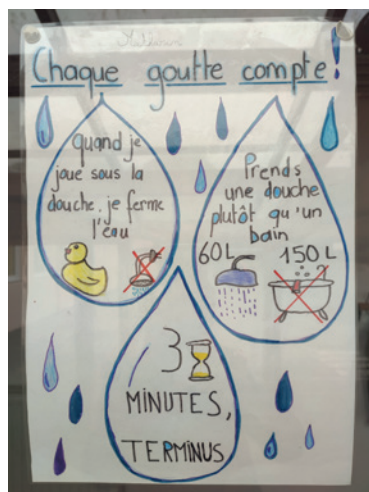 Chaque goutte compte!
quand je
joue sous la
douche, je ferme
l'eau
Prends
une douche
plutôt qu'un
bain
60L
150 L
3
MINUTES,
TERMINUS